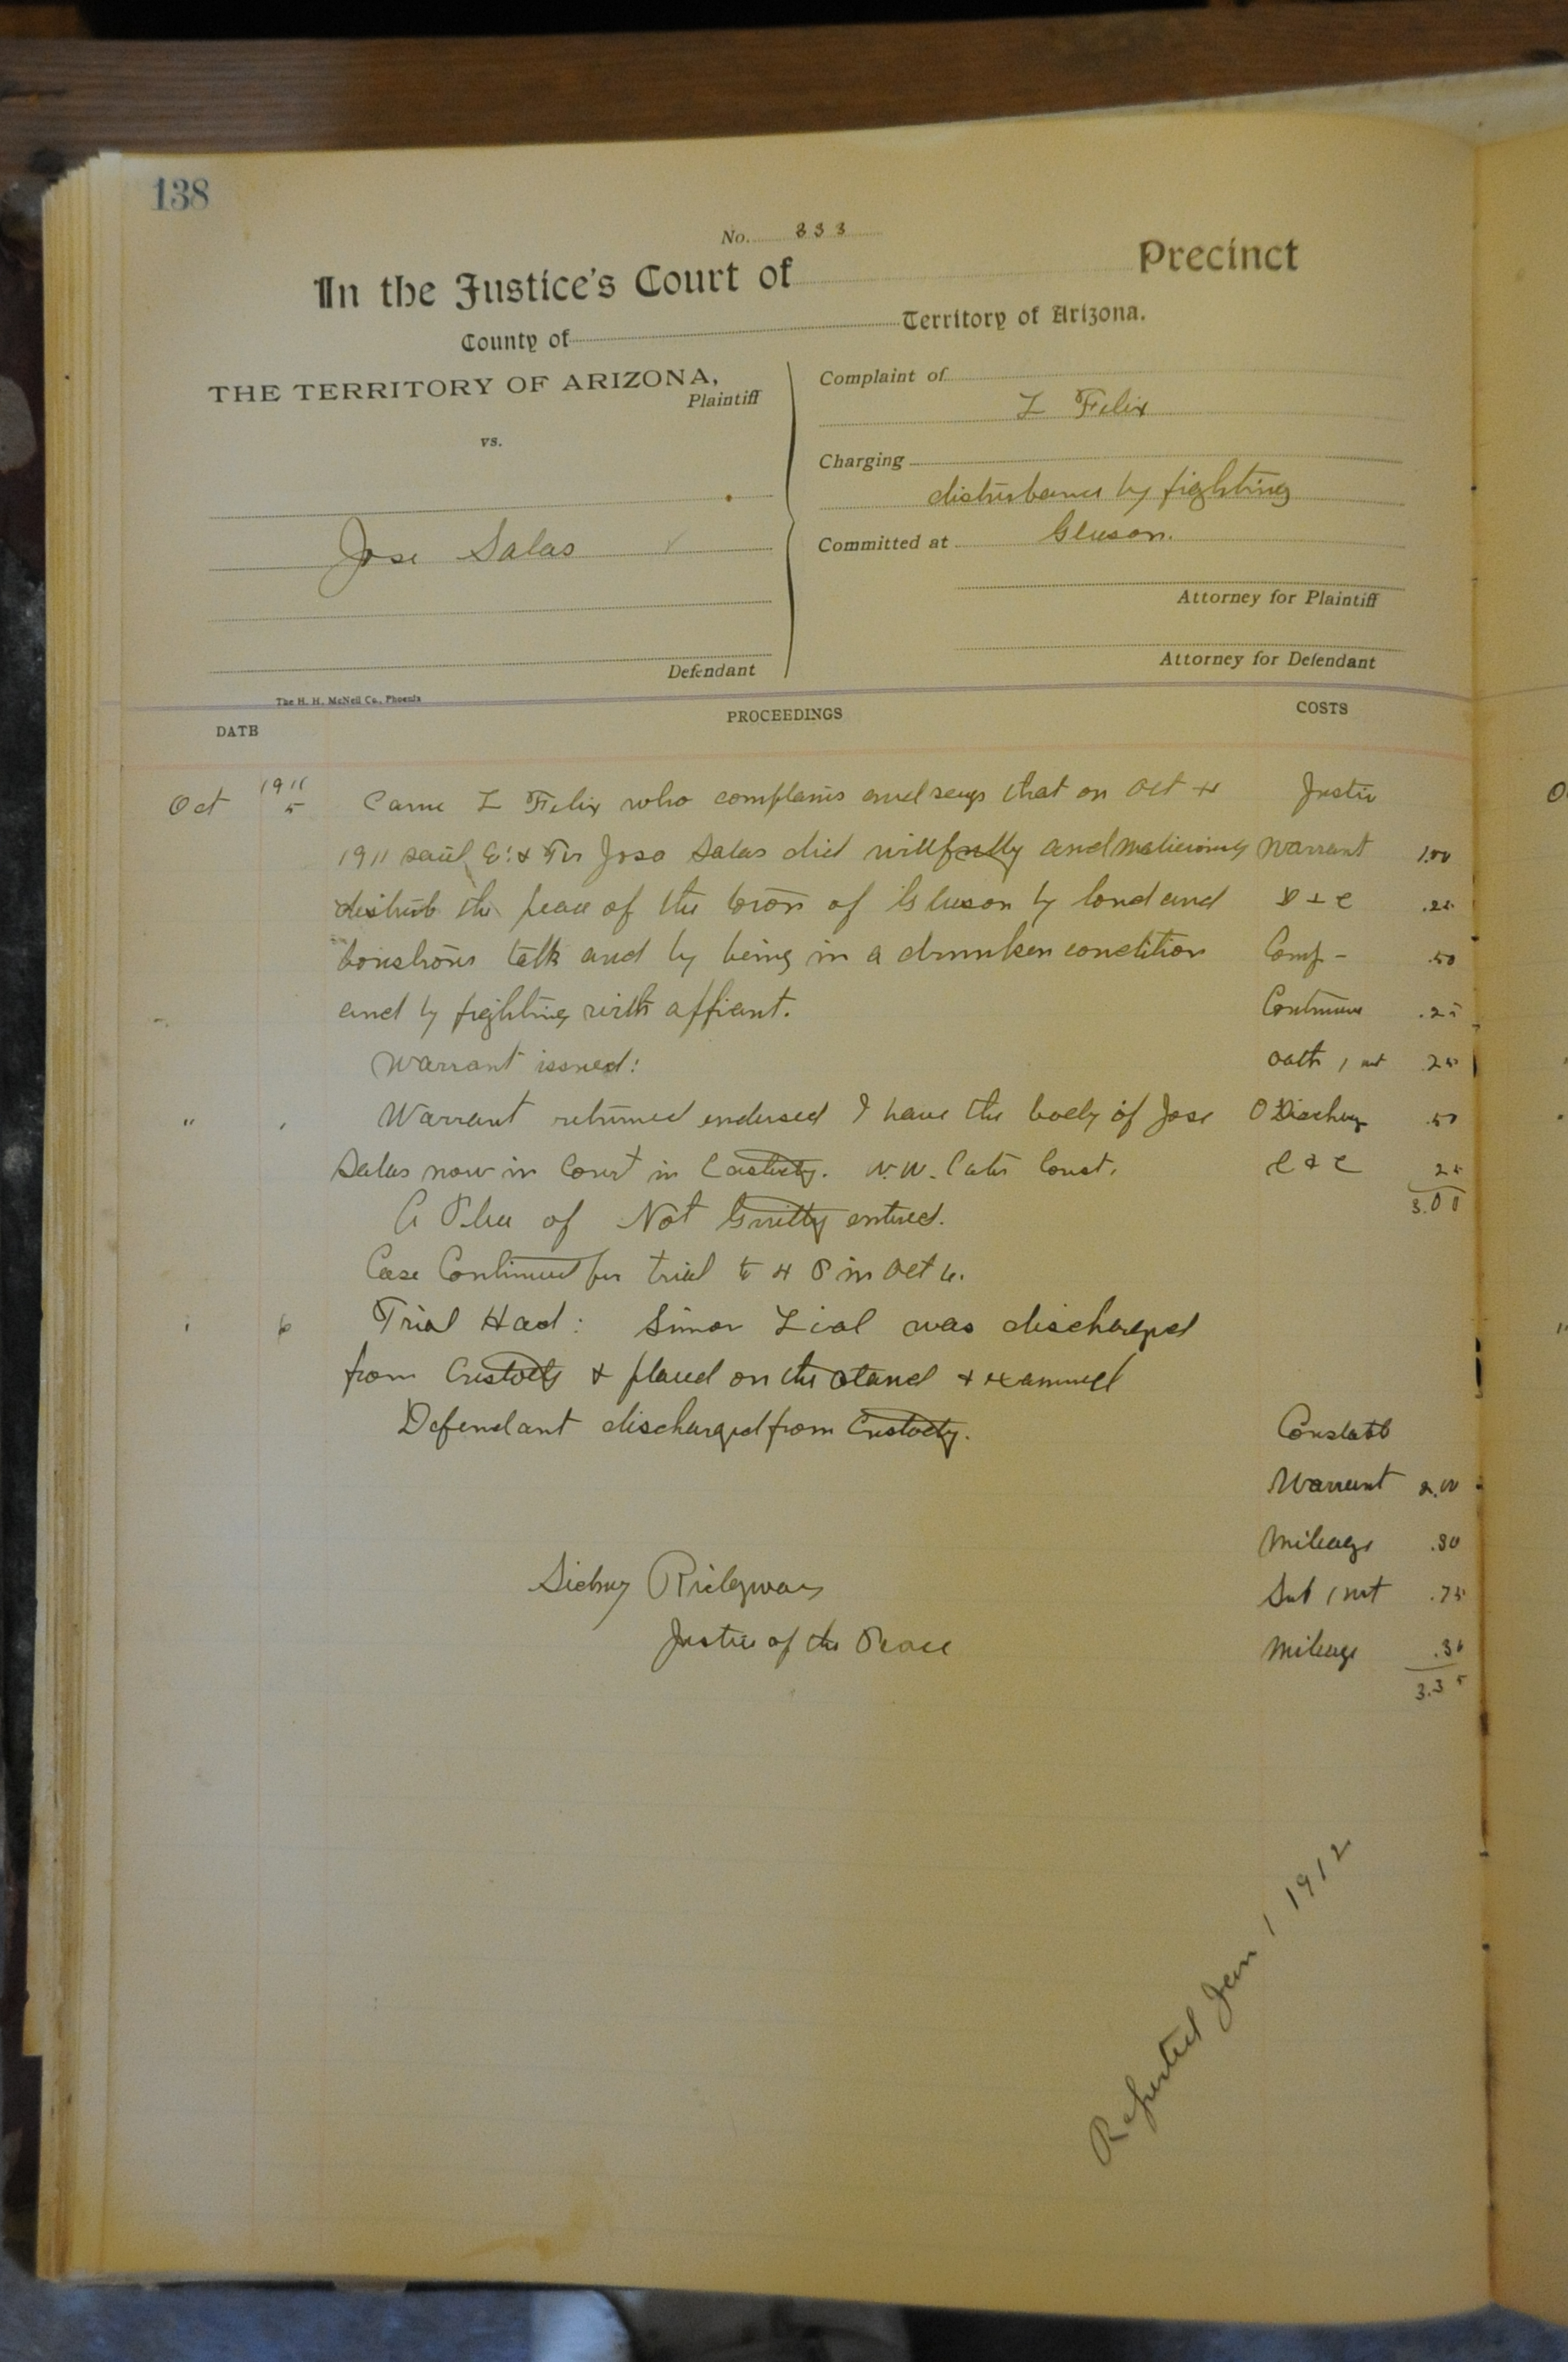 138
No. 333
In the Justice's Court of Precinct
County of Territory of Arizona.
THE TERRITORY OF ARIZONA,
Plaintiff
vs.
Jose Salas
Defendant
Complaint of
L Felix
Charging
disturbance by fighting
Committed at Gleeson.
Attorney for Plaintiff
Attorney for Defendant
The H. H. McNeil Co., Phoenix
DATE PROCEEDINGS COSTS
1911
Oct 5 Came L Felix who complains and says that on Oct 4 Justice
1911 said Jose Salas did willfully and maliciously Warrant 1.00
disturb the peace of the town of Gleeson by loud and D & E .25
boistrous talk and by being in a drunken condition Comp - .50
and by fighting with affiant. Continuance .25
Warrant issued: Oath 1 wit .25
" Warrant returned endorsed I have the body of Jose O Discharge .50
Salas now in Court in Custody. W. W. Cates Const. C & C 25
3.00
A Plea of Not Guilty entered.
Case Continued for trial to 4 P m Oct 6.
6 Trial Had: Simon Lial was discharged
from Custody & placed on the stand & examined
Defendant discharged from Custody. Constable
Warrant 2.00
Mileage .30
Sidney Ridgway
Sub 1 wit .75
Justice of the Peace
Mileage .30
3.35
Reported Jan 1 1912